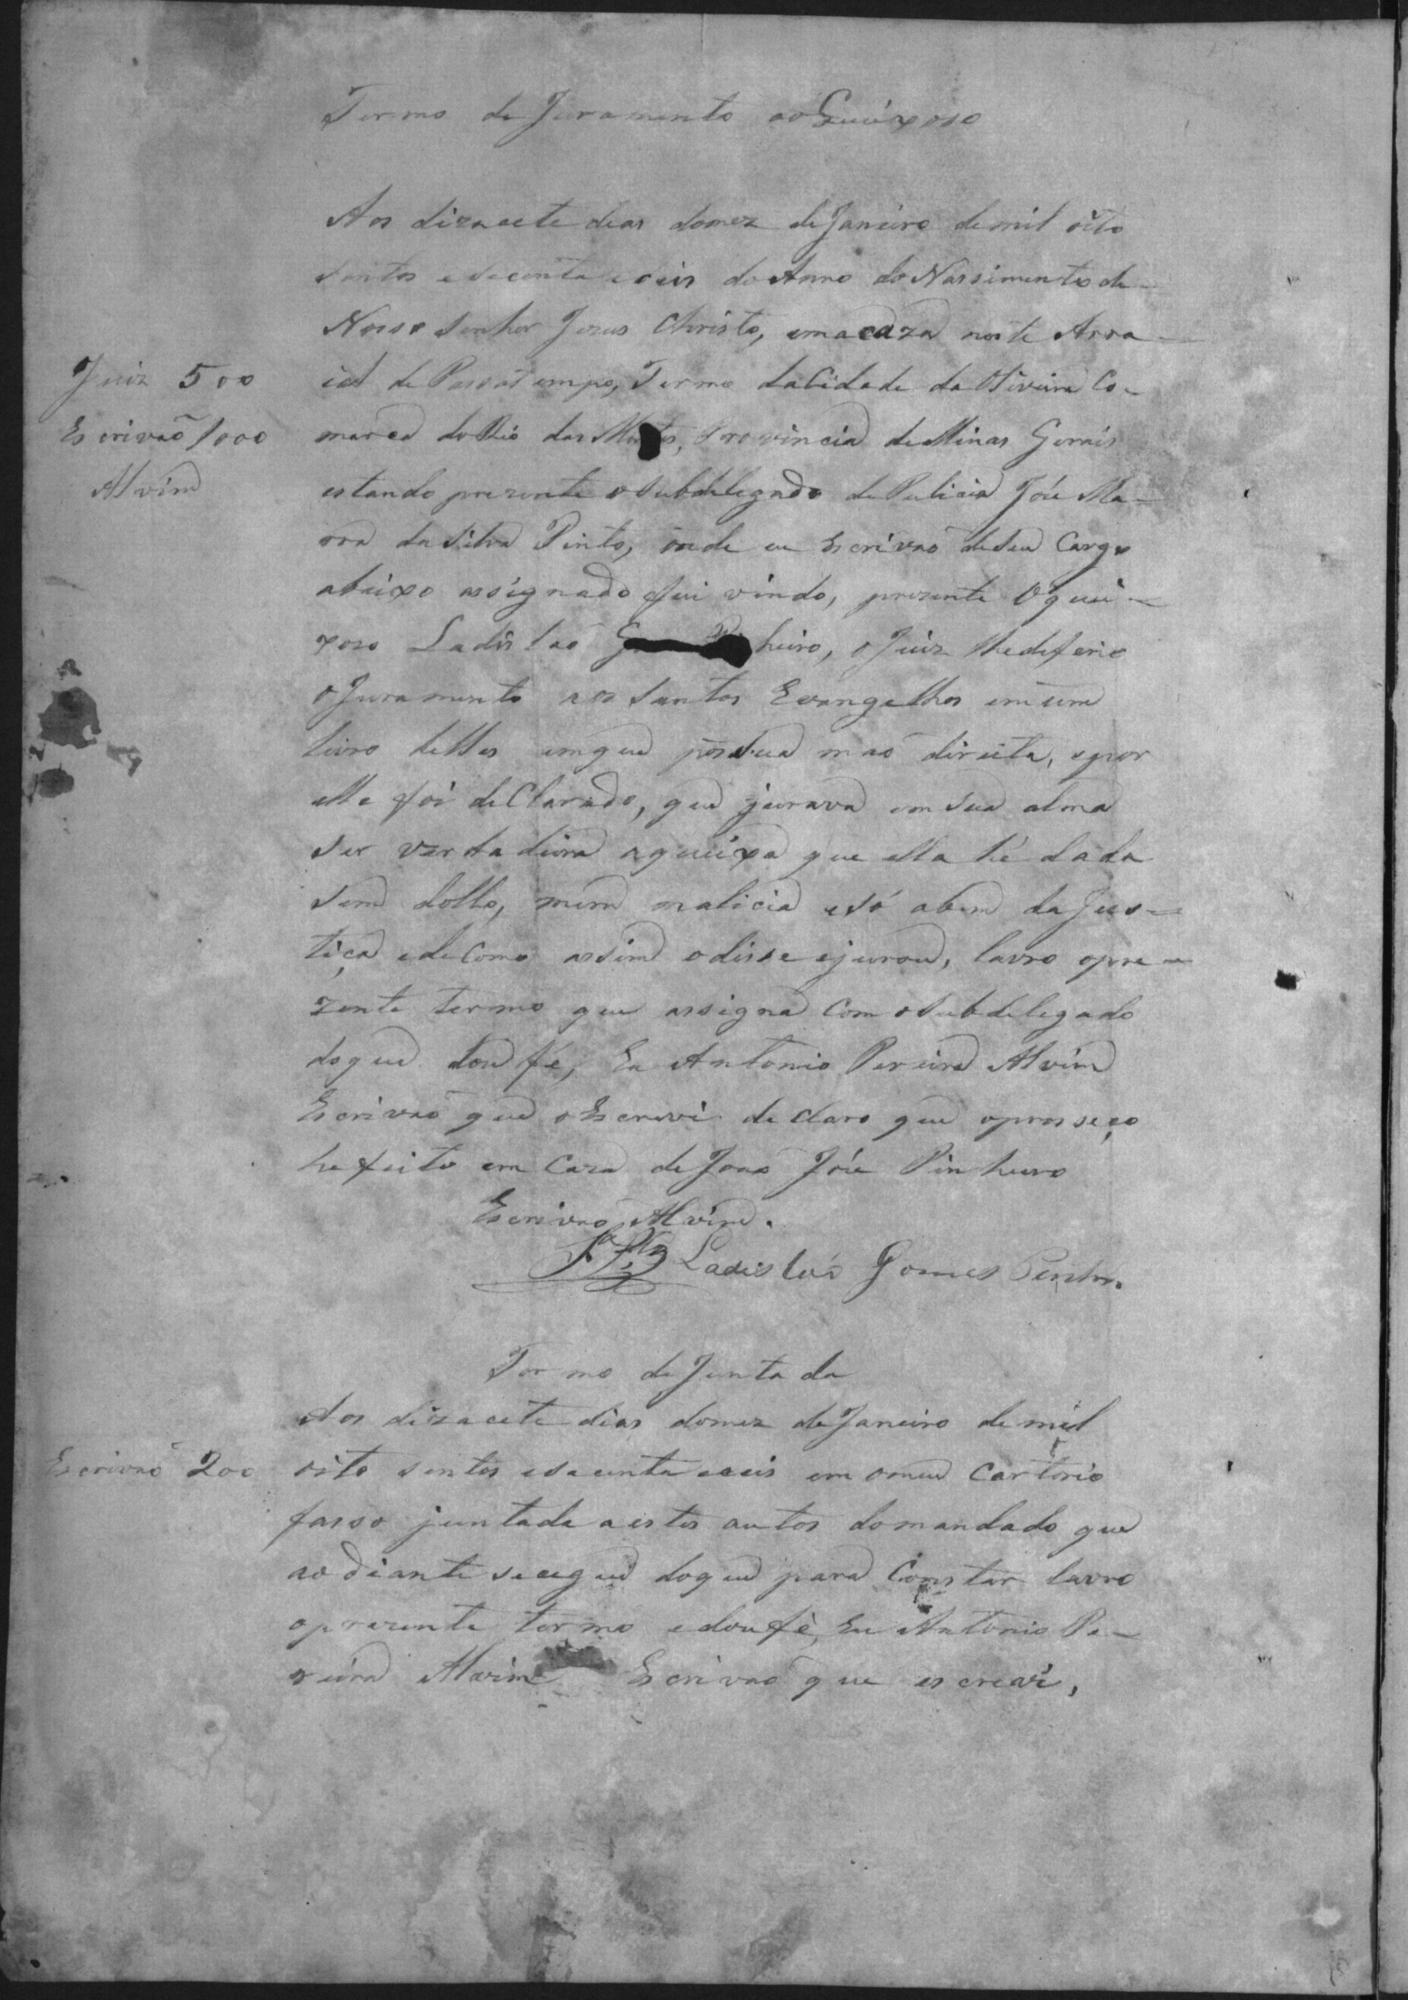 Termo de Juramento ao Queixoso
Aos dizacete dias domez de Janeiro de mil oito
sentos e secenta e ceis do Anno do Nassimento de
Nosso Senhor Jezus Christo, em a caza neste Arra-
ial de Passatempo, Termo da Cidade da Oliveira Co-
Juiz 500
Escrivaõ 1000
Alvim
marca do Rio das Mortes, Provincia de Minas Gerais
estando prezente o Subdelegado de Policia Józe Ma-
rra da Silva Pinto, onde eu Escrivaõ de seu Cargo
abaixo assignado fui vindo, prezente o quei-
xozo Ladislao heiro, o Juiz lhe deferio
o Juramento aos Santos Evangelhos em um
livro delles em que pos sua maõ direita, e por
elle foi de Clarado, que jurava em sua alma
ser verdadeira a queixa que ella hé dada
sem dollo, nem malicia e só abem da Jus-
tiça e de Como assim o disse e jurou, lavro o pre-
zente termo que assigna com o Subdelegado
do que dou fé, Eu Antonio Pereira Alvim
Escrivaõ que o Escrevi de claro que o prosseço
he feito em Caza de Joaõ Józe Pinheiro
Escrivaõ Alvim.
Ladislaó Gomes
Termo de Juntada
Aos dizacete dias domez de Janeiro de mil
Escrivaõ 200
oito sentos e secenta e ceis em o meu Cartorio
fasso juntada a estes autos do mandado que
ao diante se cegue do que para Constar lavro
o prezente termo e dou fé, Eu Antonio Pe-
reira Alvim Escrivaõ que escrevi,